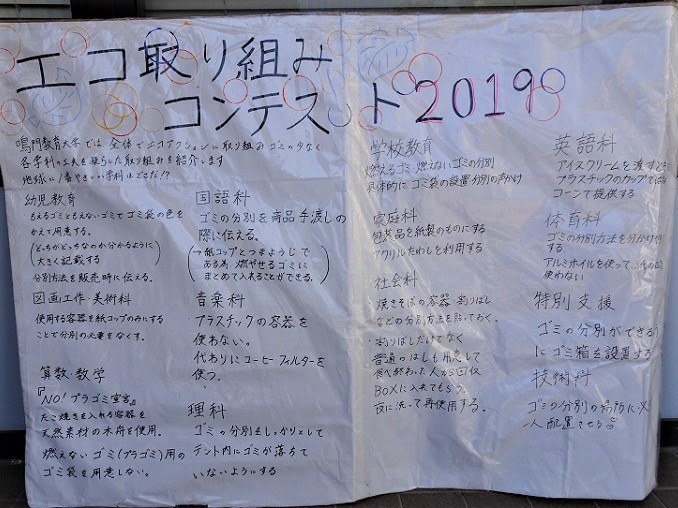 エコ取り組み
コンテスト2019
鳴門教育大学では、全体でエコアクションに取り組みゴミの少なく
各学科の工夫を凝らした取り組みを紹介します
地球に1番やさしい学科はどこだ!?
幼児教育
もえるゴミともえないゴミでゴミ袋の色を
かえて用意する。
(どっちがどっちなのか分かるように
大きく記載する)
分別方法を販売時に伝える。
図画工作・美術科
使用する容器を紙コップのみにする
ことで分別の必要をなくす。
算数・数学
『NO!プラゴミ宣言』
たこ焼きを入れる容器を
天然素材の木舟を使用。
燃えないゴミ(プラゴミ)用の
ゴミ袋を用意しない。
国語科
ゴミの分別を商品手渡しの
際に伝える。
(→紙コップとつまようじで
ある為、燃やせるゴミに
まとめて入れることができる。)
音楽科
プラスチックの容器を
使わない。
代わりにコーヒーフィルターを
使う。
理科
ゴミの分別をしっかりとして
テント内にゴミが落ちて
いないようにする
学校教育
燃えるゴミ、燃えないゴミの分別
具体的にゴミ袋の設置、分別の声かけ
家庭科
包装品を紙製のものにする
アクリルたわしを利用する
社会科
焼きそばの容器、割りばし
などの分別方法を貼っておく。
割りばしだけでなく
普通のはしも用意して
食べ終わった人から回収
BOXに入れてもらう。
夜に洗って再使用する。
英語科
アイスクリームを渡すとき
プラスチックのカップでは
コーンで提供する
体育科
ゴミの分別方法を分かりや
する
アルミホイルを使って
使わない
特別支援
ゴミの分別ができるよう
にゴミ箱を設置する
技術科
ゴミの分別の場所に必
一人配置させる